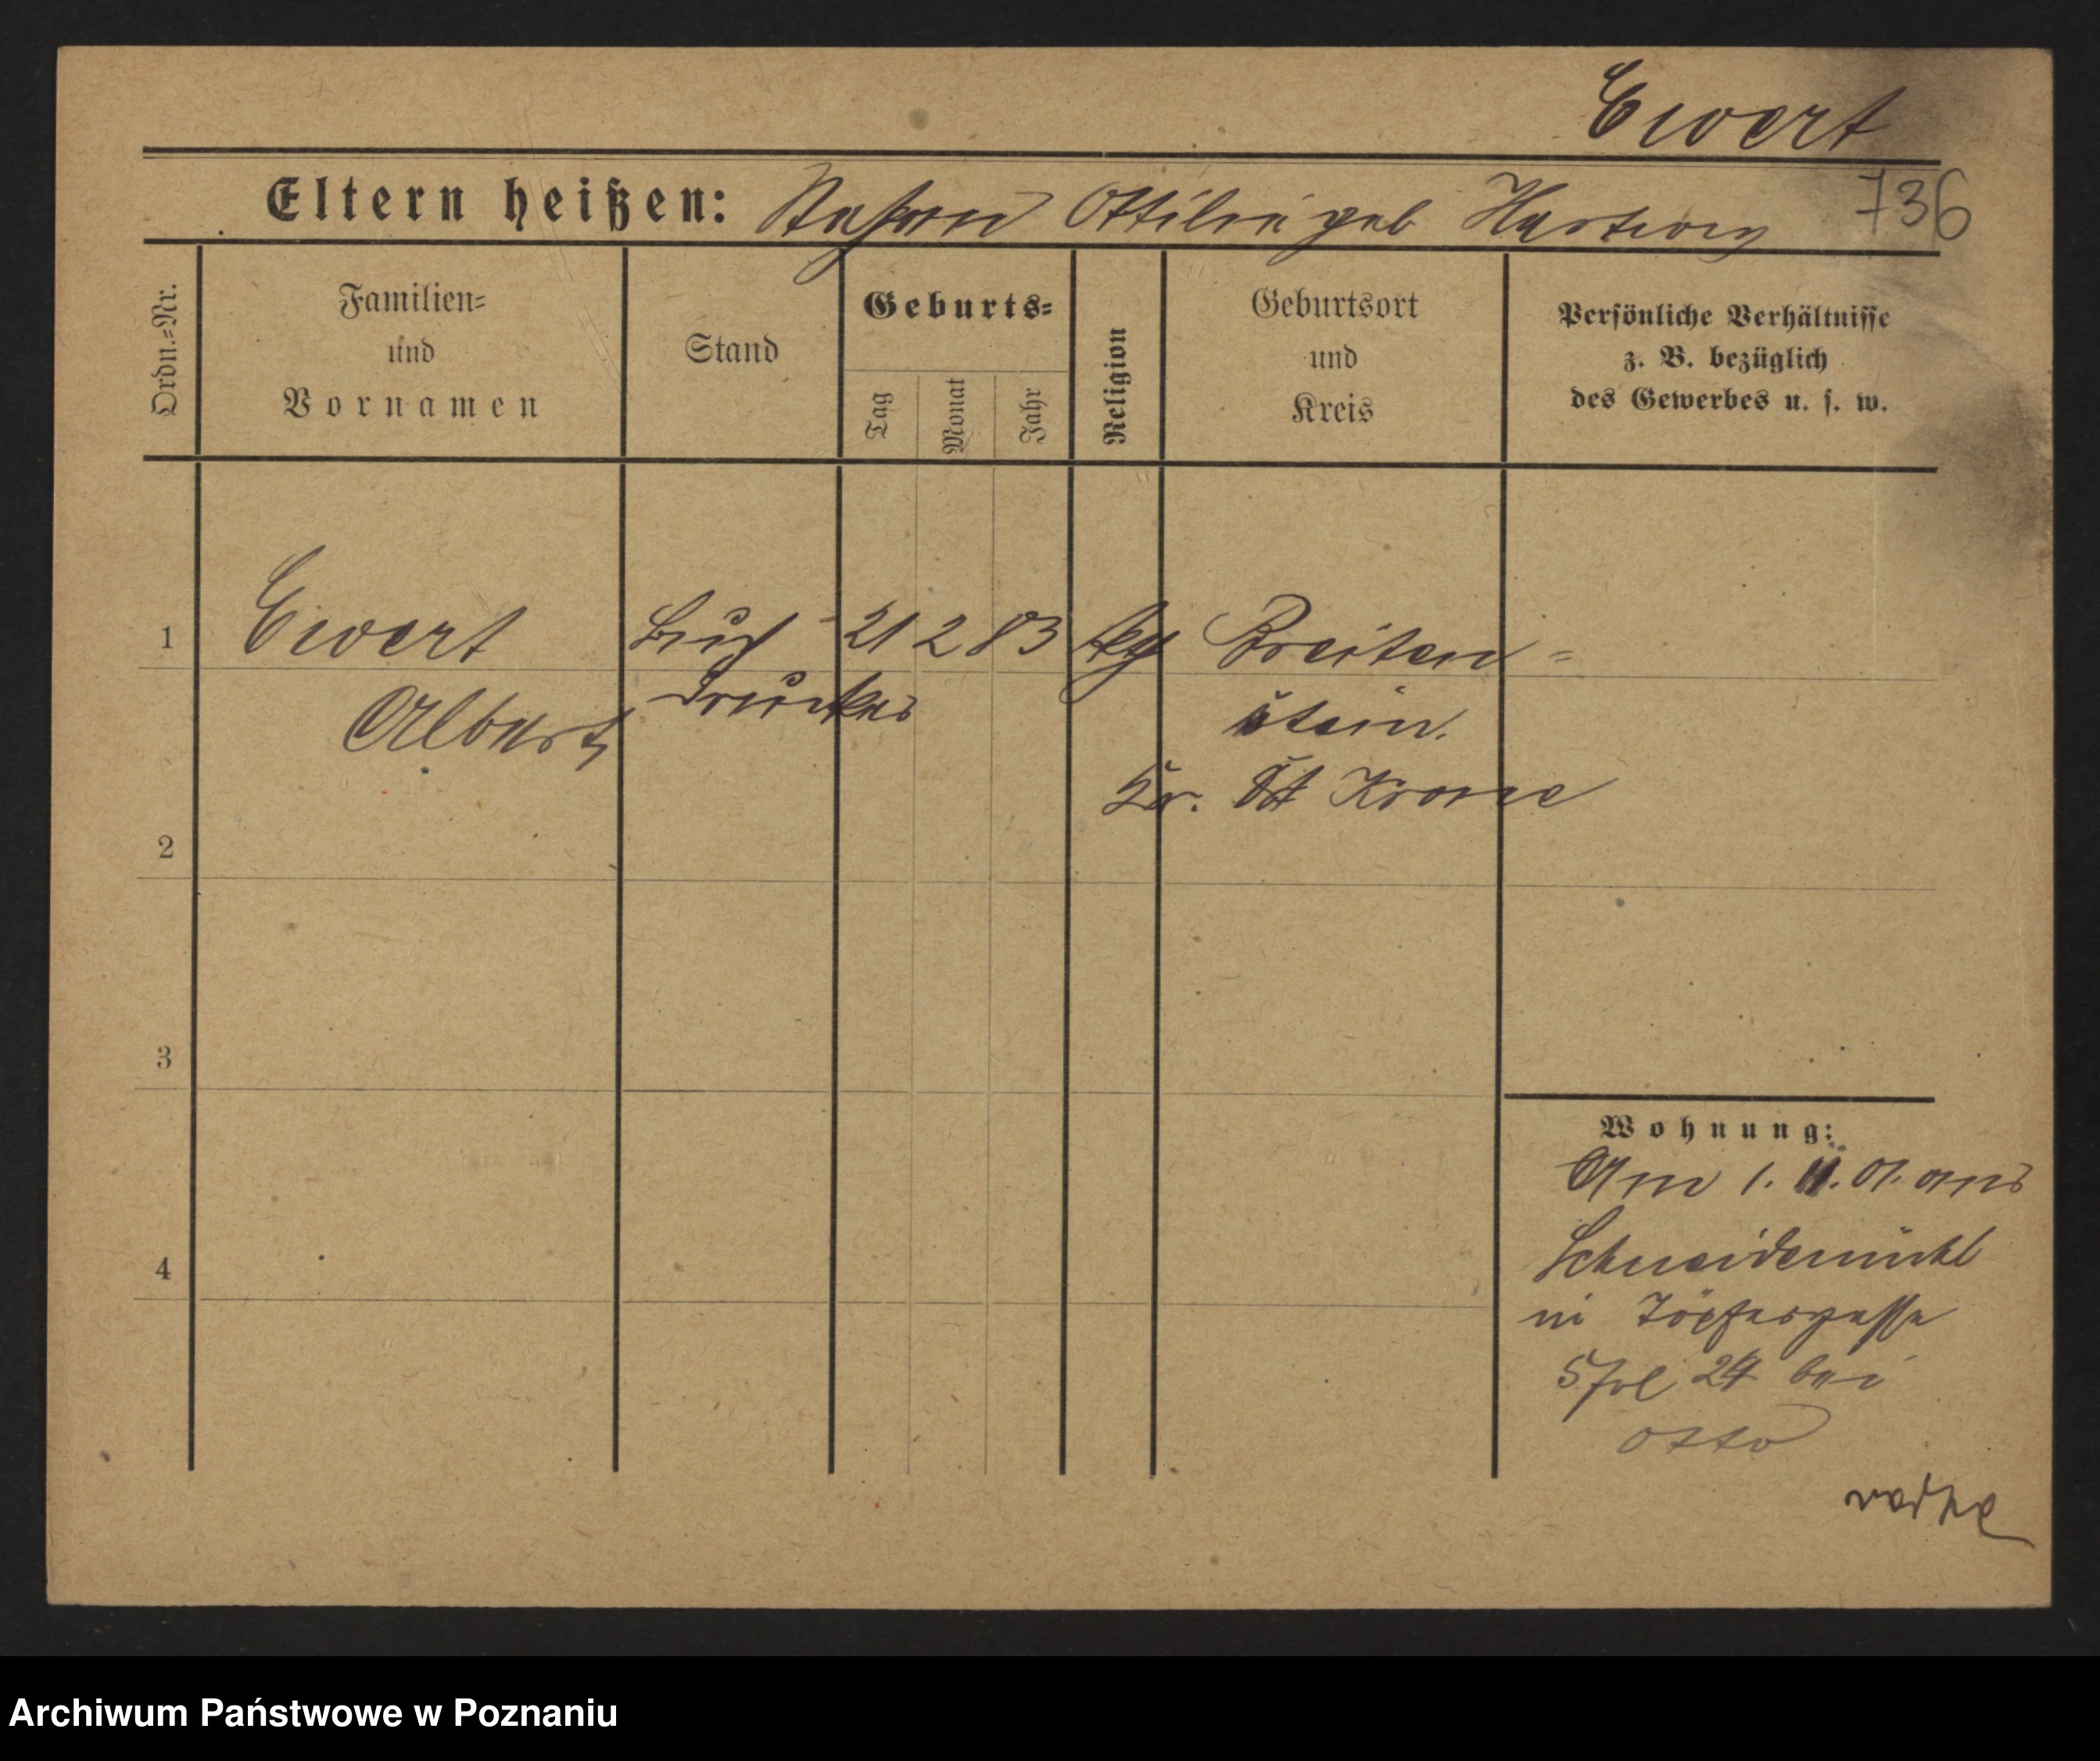 Ewert
Eltern heißen: Stefan Ottilie geb Hartwig 736
Ordn.=Nr.
Familien=
und
Vornamen
Stand
Geburts=
Tag
Monat
Jahr
Religion
Geburtsort
und
Kreis
Persönliche Verhältnisse
z. B. bezüglich
des Gewerbes u. s. w.
1 Ewert Buch 21 2 83 Breiten=
Albert drucker stein.
Kr. Dt Krone
2
3
4
Wohnung:
Am 1. 11. 01. aus
Schneidemühl
in Töpfergasse
24 bei
Otto
Archiwum Państwowe w Poznaniu